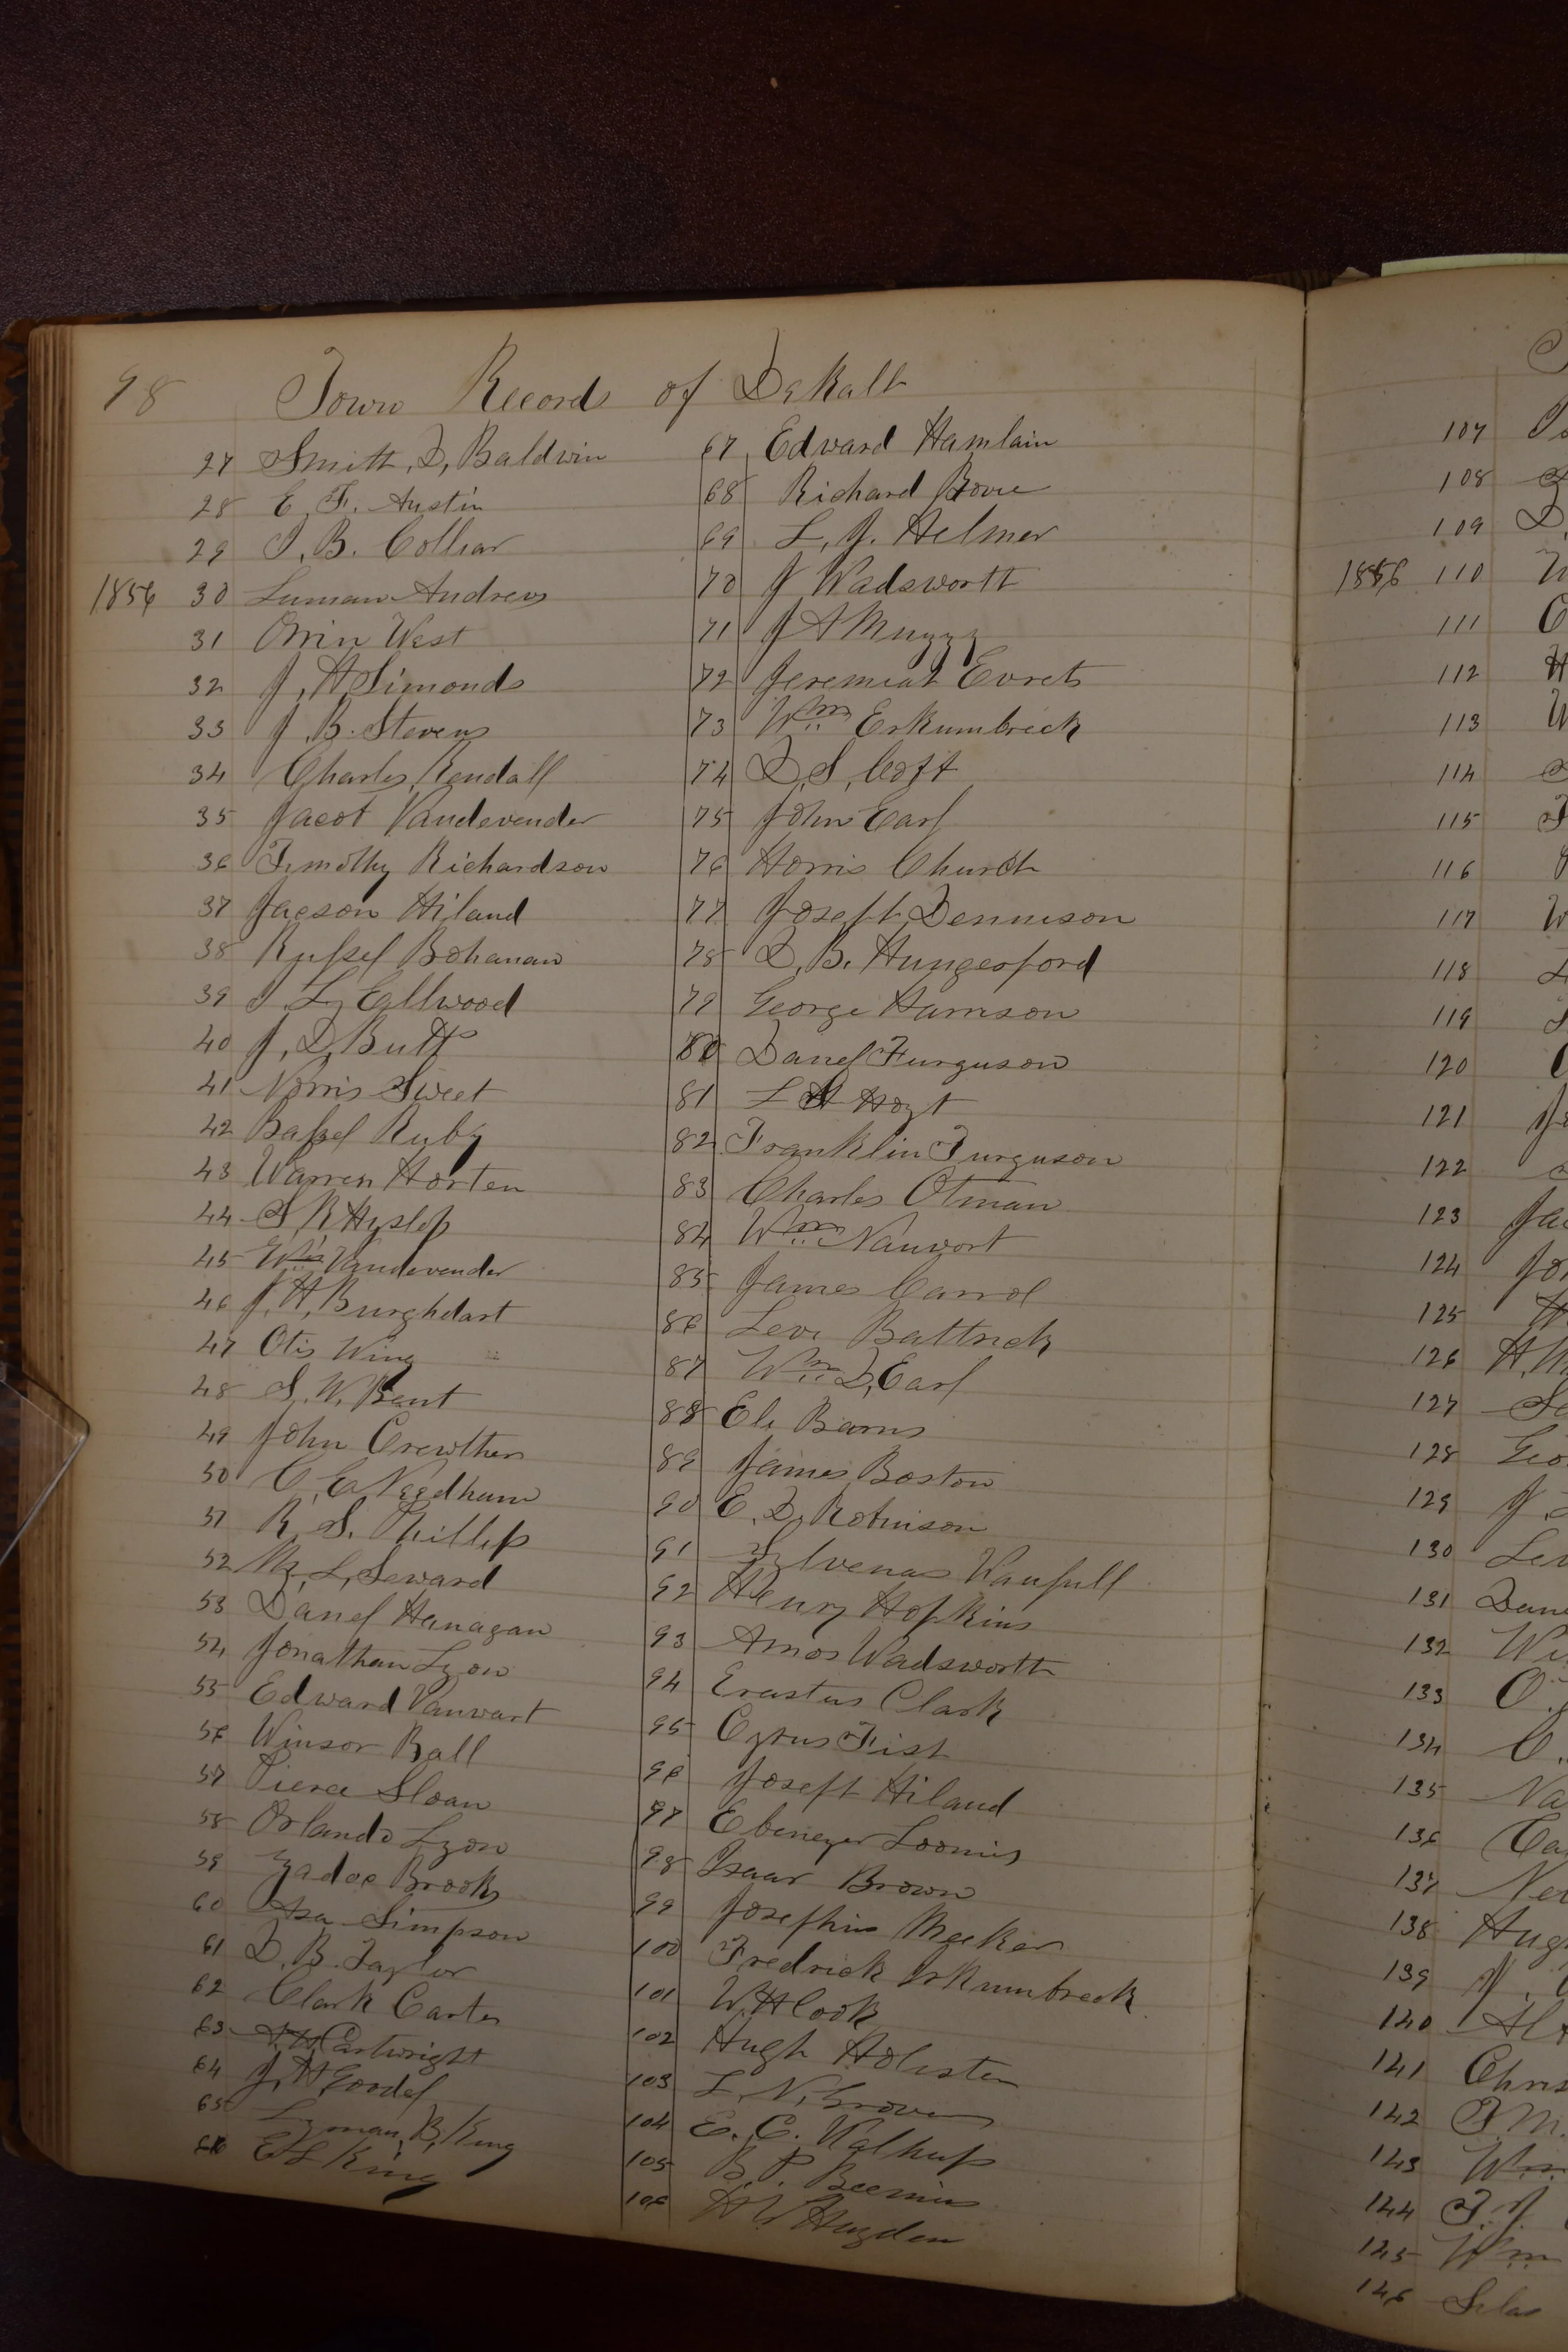 98 Town Record of DeKalb
27 Smith, D, Baldwin
28 E. F. Austin
29 I. B. Colliar
1856 30 Luman Andrews
31 Orrin West
32 J, H Simonds
33 J. B. Stevens
34 Charles Kendall
35 Jacob Vandevender
36 Timothy Richardson
37 Jacson Hiland
38 Russel Bohanan
39 I L, Ellwood
40 J, D, Butt
41 Norris Sweet
42 Bassel Ruby
43 Warren Horten
44 S R Hyslop
45 Wm Vandevender
46 J. H, Burghdart
47 Otis Wing
48 S. W. Bent
49 John Crewther
50 C, C Needham
51 R. S. Phillip
52 L, Seward
53 Danel Hanagan
54 Jonathan Lyon
55 Edward Vanwart
56 Winsor Ball
57 Pierce Sloan
58 Orlando Lyon
59 Zadoc Brooks
60 Asa Simpson
61 D. B. Taylor
62 Clark Carter
63 Cartwright
64 J, H Goodel
65 Lyman, B, King
66 E L King
67 Edward Hamlain
68 Richard Bovie
69 L, J. Helmer
70 J Wadsworth
71 J A Muzzy
72 Jeremiah Evrets
73 Wm Erkumbreck
74 D, S, Coft
75 John Earl
76 Horris Church
77 Joseph Dennison
78 D, B. Hungerford
79 George Harrison
80 Danel Furguson
81 L H Hoyt
82 Franklin Furguson
83 Charles Otman
84 Wm Nanwort
85 James Carrol
86 Levi Battrick
87 Wm D, Earl
88 Eli Barns
89 James Boston
90 E. D, Robinson
91 Sylvenas Wanfull
92 Henry Hopkins
93 Amos Wadsworth
94 Erastus Clark
95 Cyrus Fish
96 Joseph Hiland
97 Ebenezer Loomis
98 Isaac Brown
99 Josephus Meeker
100 Fredrick Irkumbreck
101 W. H Cook
102 Hugh Holister
103 L, N, Brown
104 E. C. Walhup
105 B. P. Beemis
106 H W Hugden
107
108
109 D,
1856 110 W
111 C
112 H
113 W
114
115
116
117 W
118
119
120
121 Jo
122
123 Jac
124 Jo
125 H
126 H. M
127
128 Geo
129 J.
130 Lev
131 Dan
132 Wi
133 O.
134 C.
135 Na
136 Ca
137 Ne
138 Hug
139
140 Al
141 Chris
142
143 Wm
144
145 Wm
146 Silas